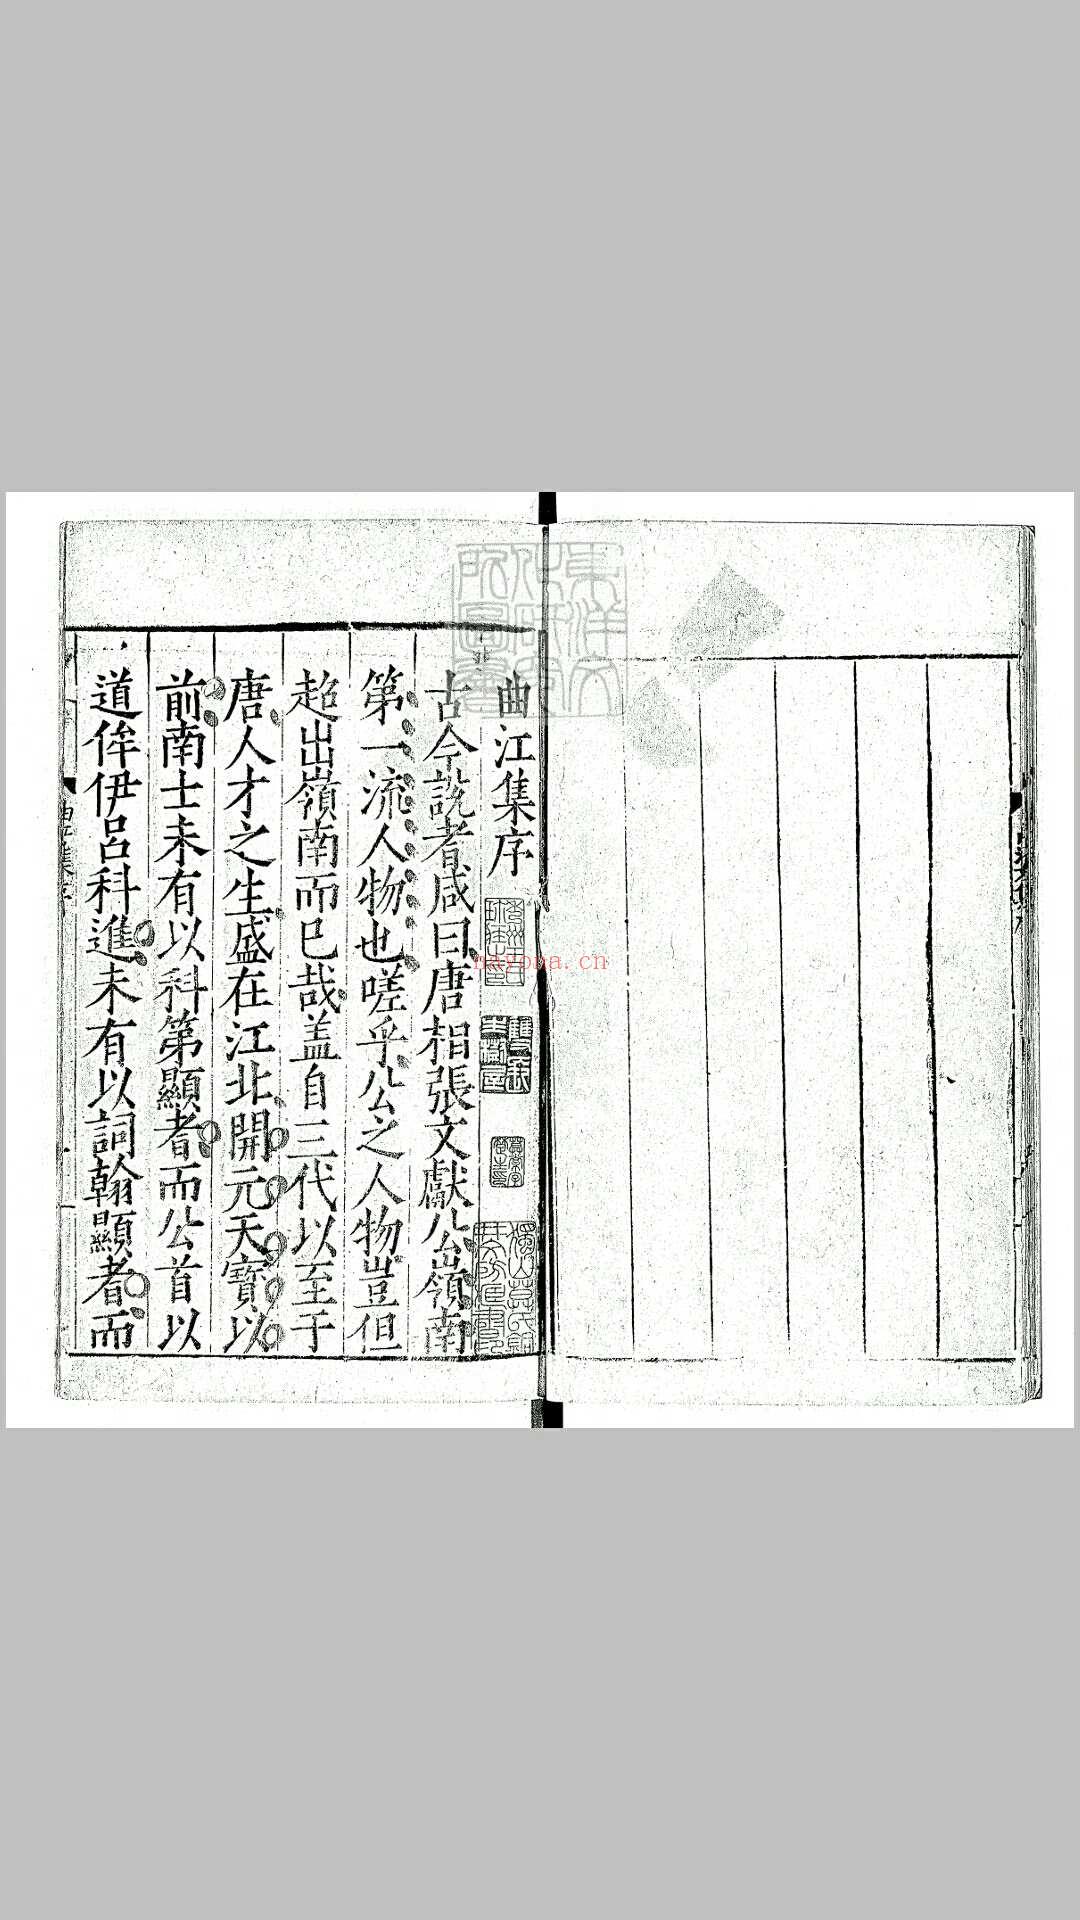 曲江集序
古今說者咸曰唐相張文獻公嶺南
第一流人物也嗟乎公之人物豈但
超出嶺南而已哉盖自三代以至于
唐人才之生盛在江北開元天寶以
前南士未有以科第顯者而公首以
道侔伊呂科進未有以詞翰顯者而
nayona.cn